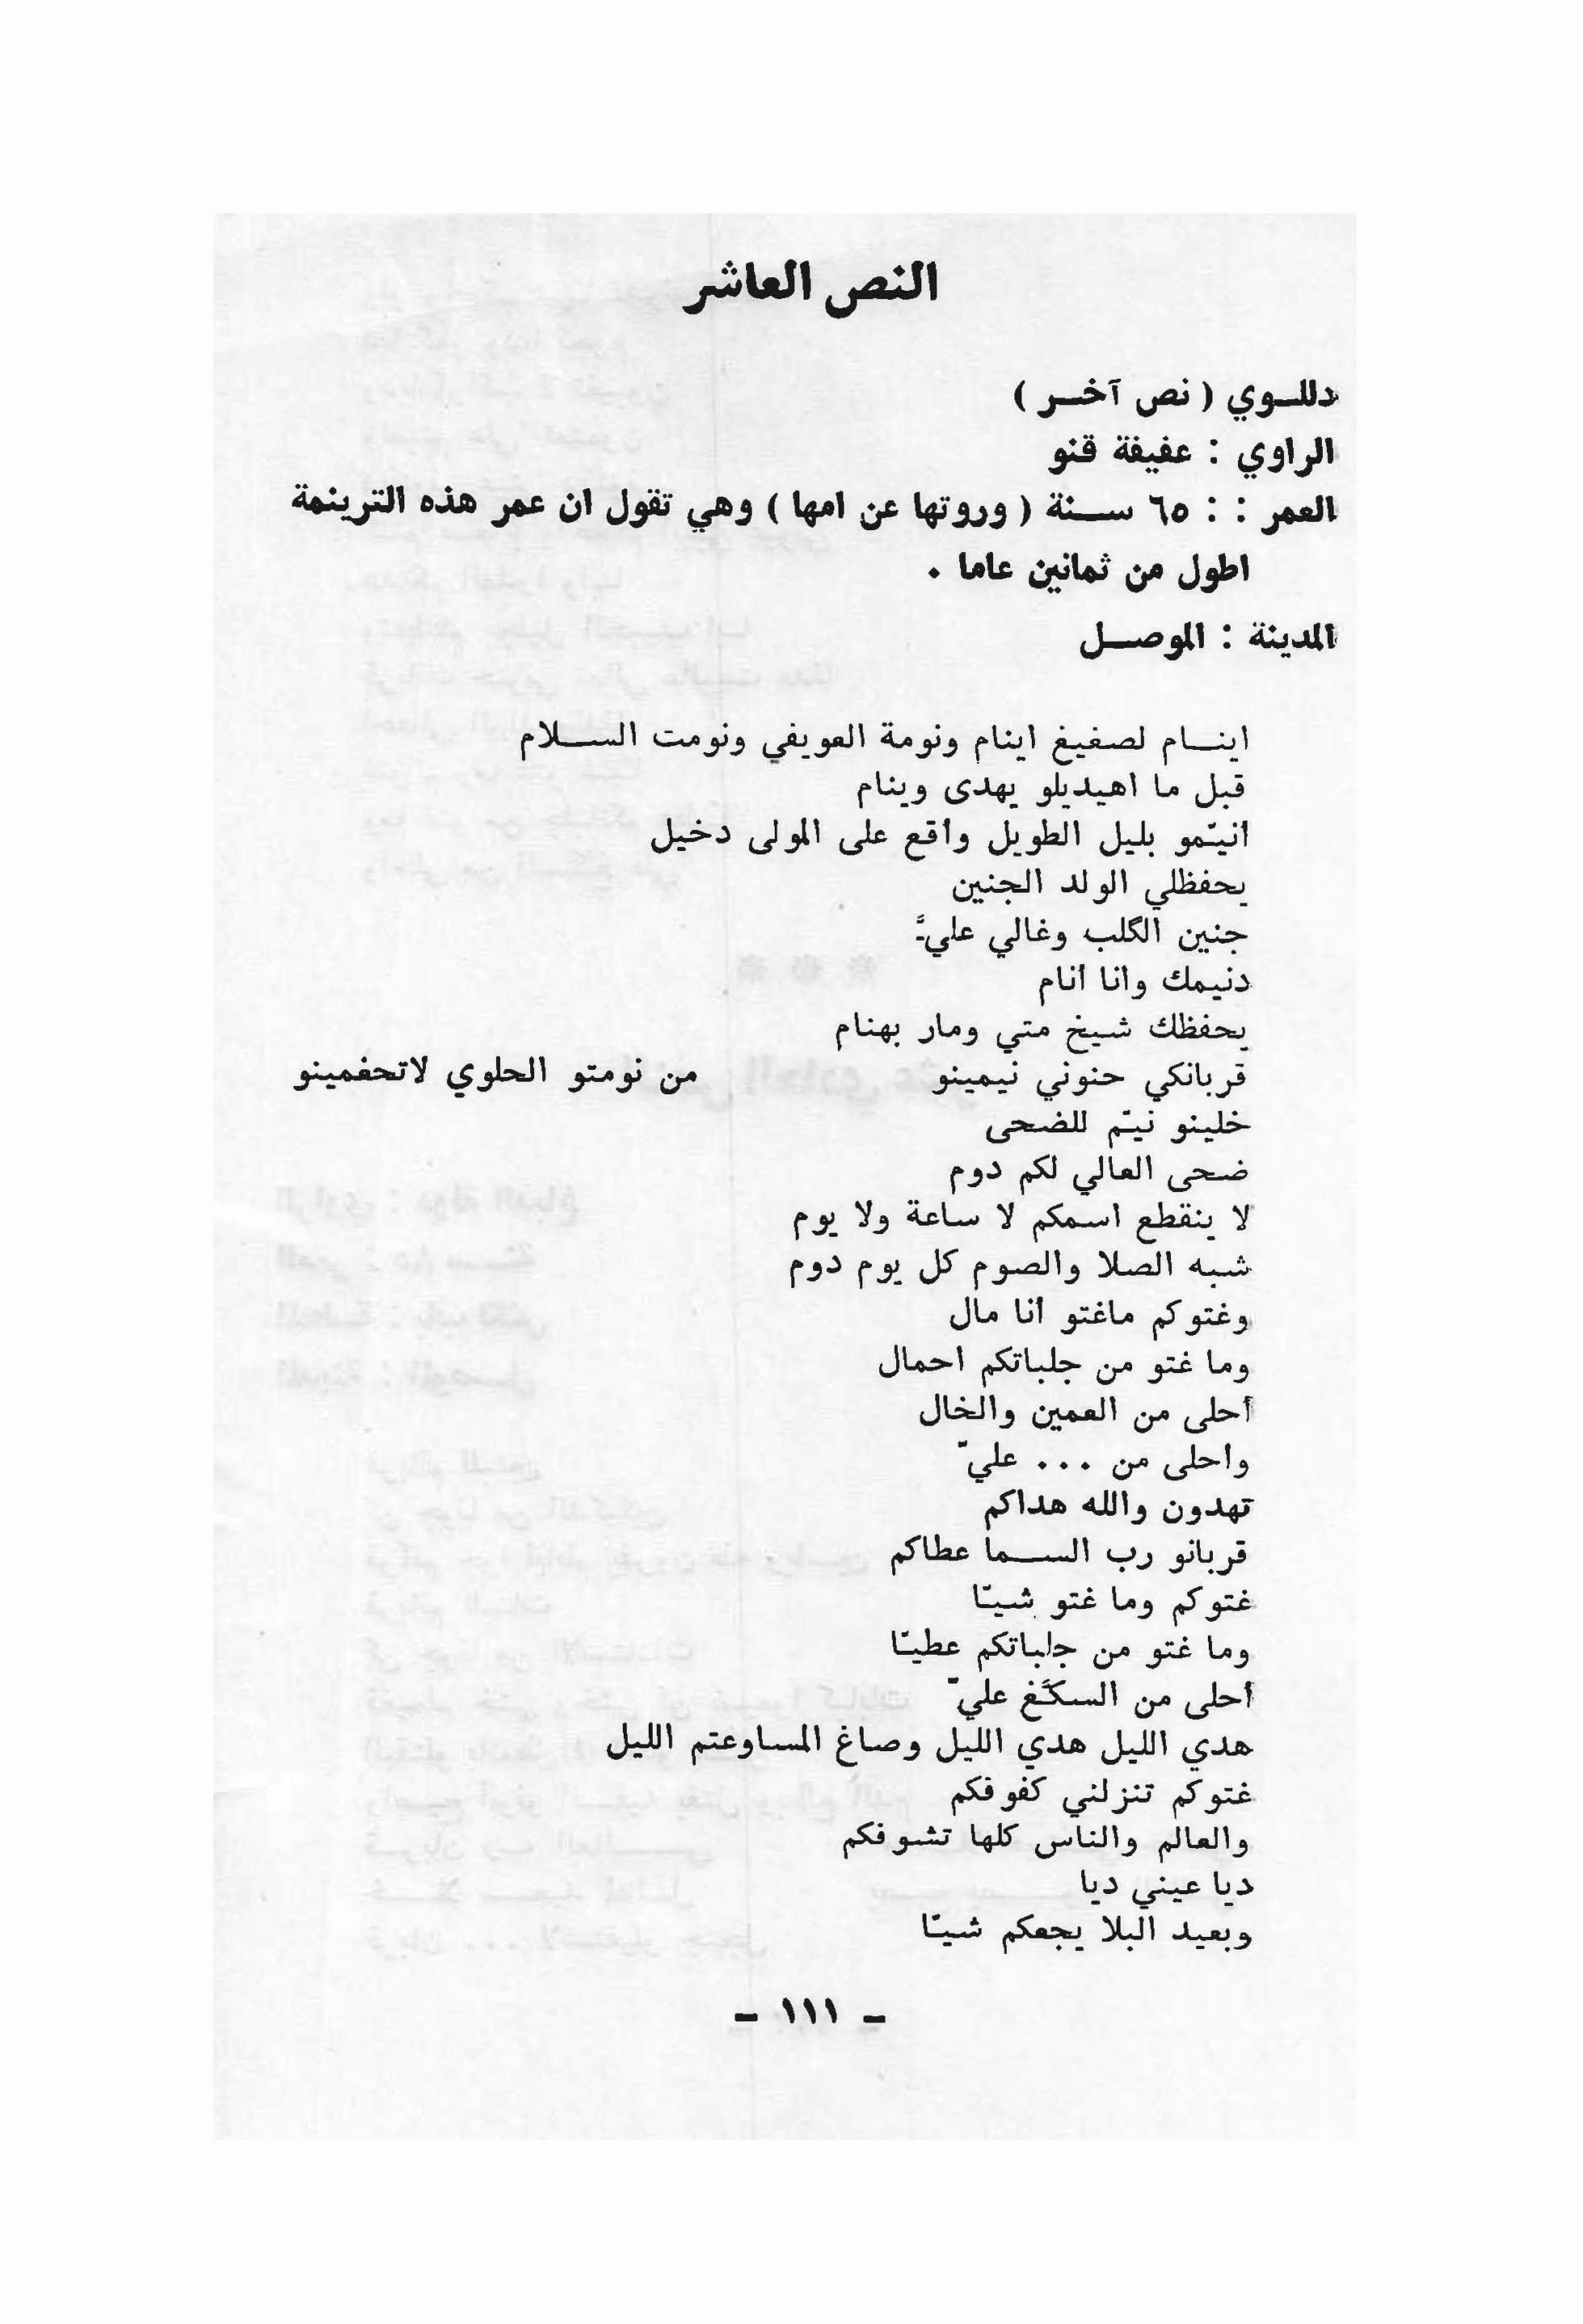 النص العاشر
دللـوي ( نص آخـر )
الراوي : عفيفة قنو
العمر : : ٦٥ سـنة ( وروتها عن امها ) وهي تقول ان عمر هذه الترينمة
اطول من ثمانين عاما .
المدينة : الموصـل
اينـام لصغيغ اينام ونومة العويفي ونومت السـلام
قبل ما اهيديلو يهدى وينام
أنيّمو بليل الطويل وأقع على المولى دخيل
يحفظلي الولد الجنين
جنين الگلب وغالي عليَّ
دنيمك وأنا أنام
يحفظك شيخ متي ومار بهنام
قربانكي حنوني نيمينو من نومتو الحلوي لاتحفمينو
خلينو نيّم للضحى
ضحى العالي لكم دوم
لا ينقطع اسمكم لا ساعة ولا يوم
شبه الصلا والصوم كل يوم دوم
وغتوكم ماغتو أنا مال
وما غتو من جلباتكم احمال
أحلى من العمين والخال
واحلى من ... عليّ
تهدون والله هداكم
قربانو رب السـما عطاكم
غتوكم وما غتو شيّا
وما غتو من جلباتكم عطيّا
أحلى من السكّغ عليّ
هدي الليل هدي الليل وصاغ المساوعتم الليل
غتوكم تنزلني كفوفكم
والعالم والناس كلها تشوفكم
ديا عيني ديا
وبعيد البلا يجعكم شيّا
- ١١١ -